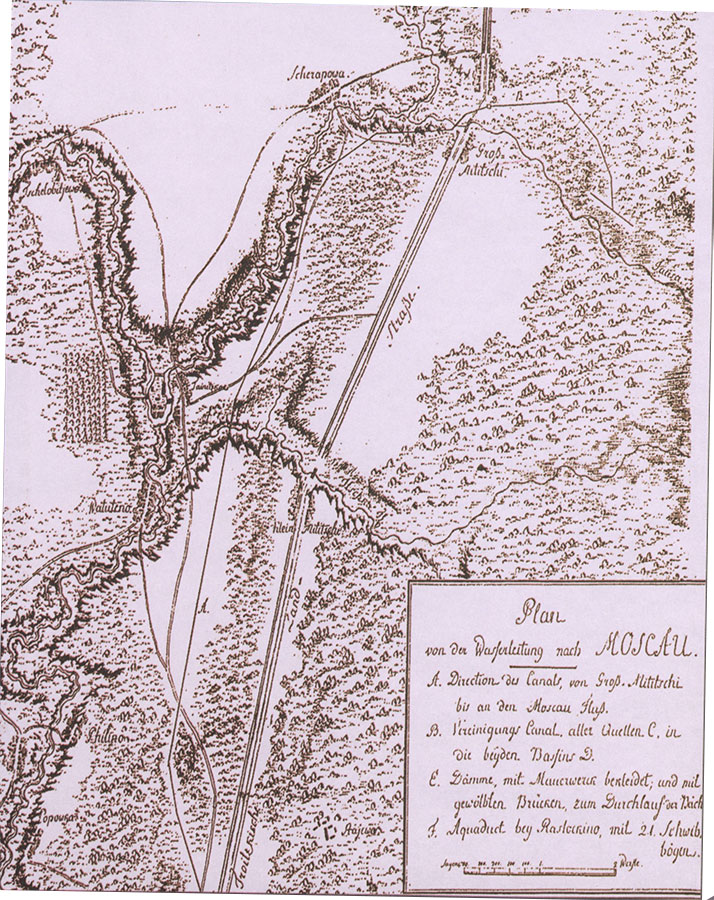 Scherapova.
Groß
Mititschi
Straße.
Klein Mititschi
Land-
A
Plan
von der Wasserleitung nach MOSCAU.
A. Direction des Canals, von Groß-Mititschi
bis an den Moscau Fluß.
B. Vereinigungs Canal, aller Quellen C, in
die beyden Bassins D.
E. Dämme, mit Mauerwerck bekleidet; und mit
gewölbten Brücken, zum Durchlauf der Bäch
F. Aquaduct bey Rastockino, mit 21. Schwib
bögen.
Werste.